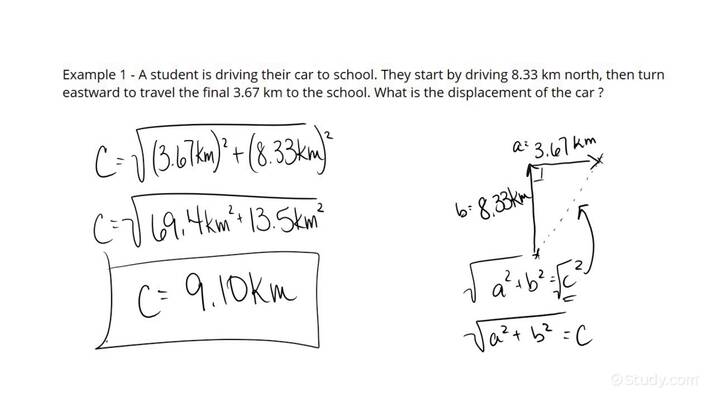 Example 1 - A student is driving their car to school. They start by driving 8.33 km north, then turn
eastward to travel the final 3.67 km to the school. What is the displacement of the car ?
C = √(3.67km)² + (8.33km)²
C = √69.4km² + 13.5km²
C = 9.10km
a = 3.67km
b = 8.33km
√a² + b² = √c²
√a² + b² = C
©Study.com